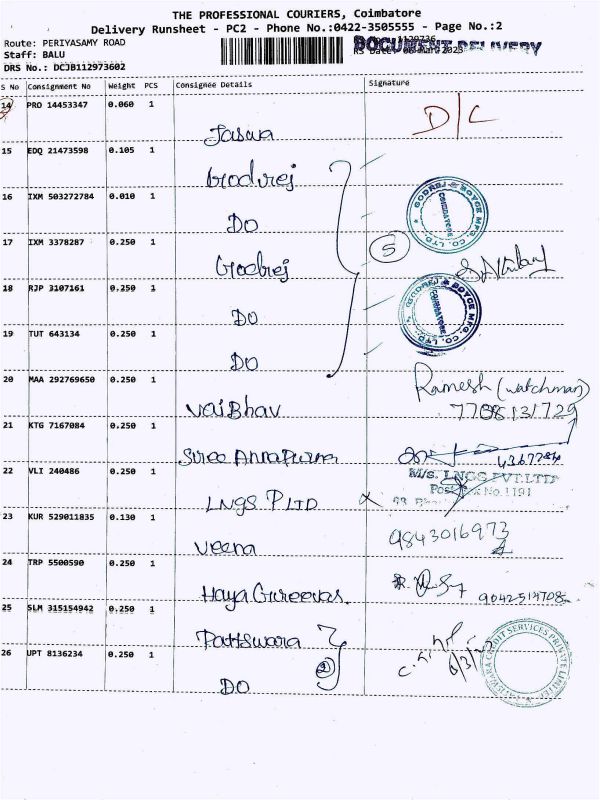 THE PROFESSIONAL COURIERS, Coimbatore
Delivery Runsheet - PC2 - Phone No.:0422-3505555 - Page No.:2
Route: PERIYASAMY ROAD
Staff: BALU
DRS No.: DCJB112973602
DOCUMENT DELIVERY
S No Consignment No Weight PCS Consignee Details Signature
14 PRO 14453347 0.060 1 D/C
Jaswa
15 EDQ 21473598 0.105 1
Godrej
16 IXM 503272784 0.010 1
DO
GODREJ & BOYCE MFG. CO. LTD.
COIMBATORE
17 IXM 3378287 0.250 1
Godrej
5
18 RJP 3107161 0.250 1
DO
GODREJ & BOYCE MFG. CO. LTD.
COIMBATORE
19 TUT 643134 0.250 1
DO
20 MAA 292769650 0.250 1
Vaibhav
Ramesh (watchman)
7708131729
21 KTG 7167084 0.250 1
Sree Annapurna
22 VLI 240486 0.250 1
LNGS P LTD
M/S. LNGS PVT.LTD
No.1191
23 KUR 529011835 0.130 1
Veena
9843016973
24 TRP 5500590 0.250 1
Haya
25 SLM 315154942 0.250 1
Pattswara
26 UPT 8136234 0.250 1
DO
2
CREDIT SERVICES PRIVATE LIMITED